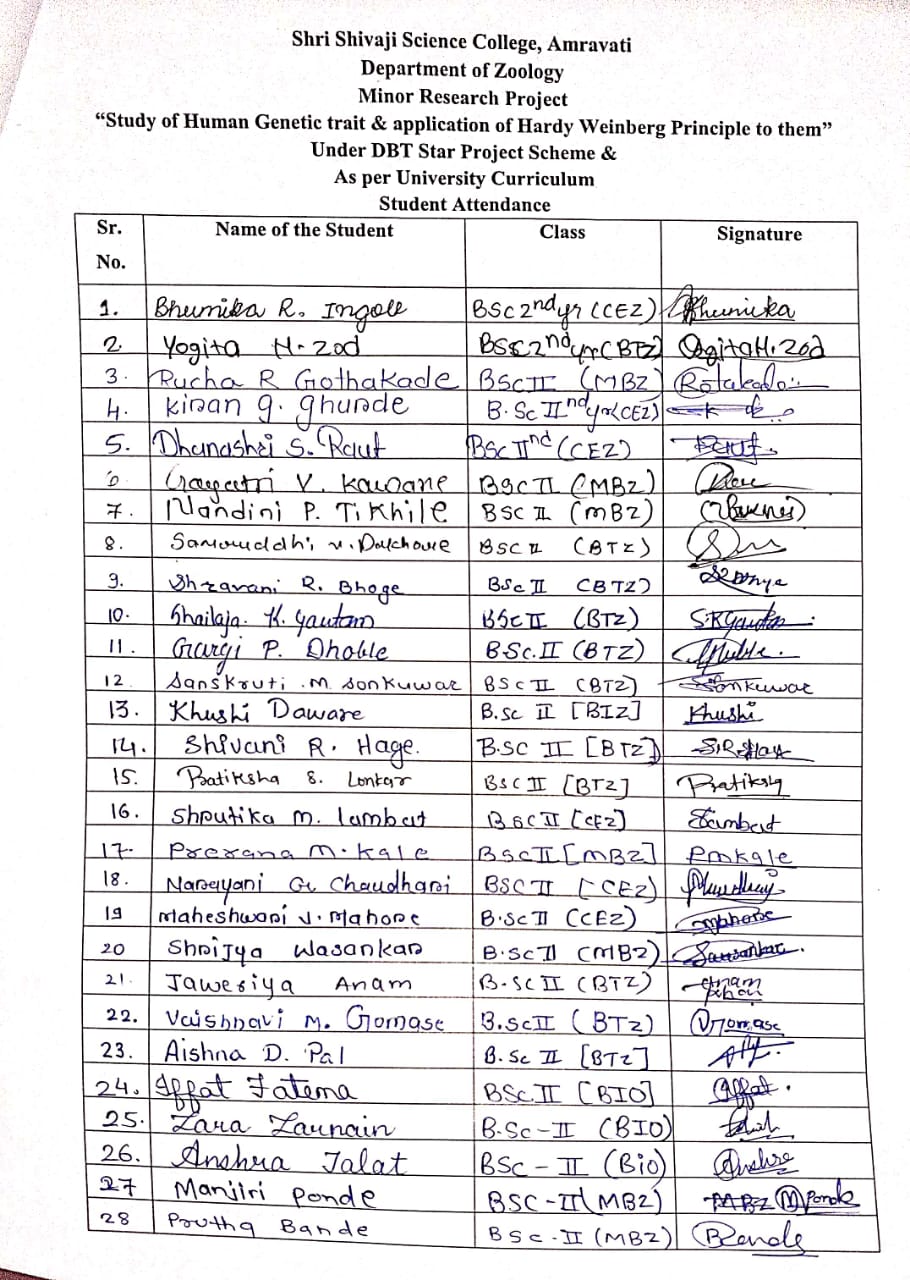 Shri Shivaji Science College, Amravati
Department of Zoology
Minor Research Project
“Study of Human Genetic trait & application of Hardy Weinberg Principle to them”
Under DBT Star Project Scheme &
As per University Curriculum
Student Attendance
Sr. No. Name of the Student Class Signature
1. Bhumika R. Ingole BSc 2nd yr (CEZ) Bhumika
2 Yogita H. Zod BSc 2nd yr (BTZ) Yogita H. Zod
3. Rucha R Gothakade BSc II (MBZ)
4. Kiran G. Ghunde B.Sc IInd yr (CEZ)
5. Dhanashri S. Raut BSc IInd (CEZ) Raut
6 Gayatri V. Kawane BSC II (MBZ)
7. Nandini P. Tikhile BSC II (MBZ)
8. Samruddhi V. BSC II (BTZ)
9. Shravani R. Bhoge BSc II (BTZ)
10. Shailaja K. Gautam BSc II (BTZ) S.K Gautam
11. Gargi P. Dhoble B.Sc. II (BTZ)
12. Sanskruti .M Sonkuwar BSC II (BTZ) Sonkuwar
13. Khushi Daware B.Sc II [BIZ] Khushi
14. Shivani R. Hage. B.SC II [BTZ]
15. Pratiksha S. Lonkar BSC II [BTZ] Pratiksha
16. Shrutika M. lambat BSC II [CEZ] Lambat
17. Prerana M. Kale BSC II [MBZ] PMKale
18. Narayani G. Chaudhari BSC II [CEZ)
19 Maheshwari V. Mahore B.Sc II (CEZ) Mahore
20 Shrijya Wasankar B.Sc II (MBZ)
21. Jaweriya Anam B.SC II (BTZ) Anam Khan
22. Vaishnavi M. Gomase B.Sc II (BTZ) VGomase
23. Aishna D. Pal B.Sc II [BTZ]
24. Iffat Fatema BSC.II [BIO] Iffat.
25. Zara Zarnain B.Sc-II (BIO)
26. Anshra Talat BSc-II (Bio) Anshra
27 Manjiri Ponde BSC-II (MBZ) M Ponde
28 Prutha Bande BSc-II (MBZ) Bande